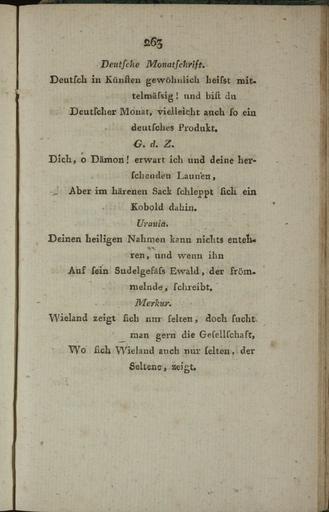 263
Deutſche Monatſchrift.
Deutſch in Künſten gewöhnlich heiſst mit-
telmäſsig! und biſt du
Deutſcher Monat, vielleicht auch ſo ein
deutſches Produkt.
G. d. Z.
Dich, o Dämon! erwart ich und deine her-
ſchenden Launen,
Aber im härenen Sack ſchleppt ſich ein
Kobold dahin.
Urania.
Deinen heiligen Nahmen kann nichts enteh-
ren, und wenn ihn
Auf ſein Sudelgefäſs Ewald, der fröm-
melnde, ſchreibt.
Merkur.
Wieland zeigt ſich nur ſelten, doch ſucht
man gern die Geſellſchaft,
Wo ſich Wieland auch nur ſelten, der
Seltene, zeigt.